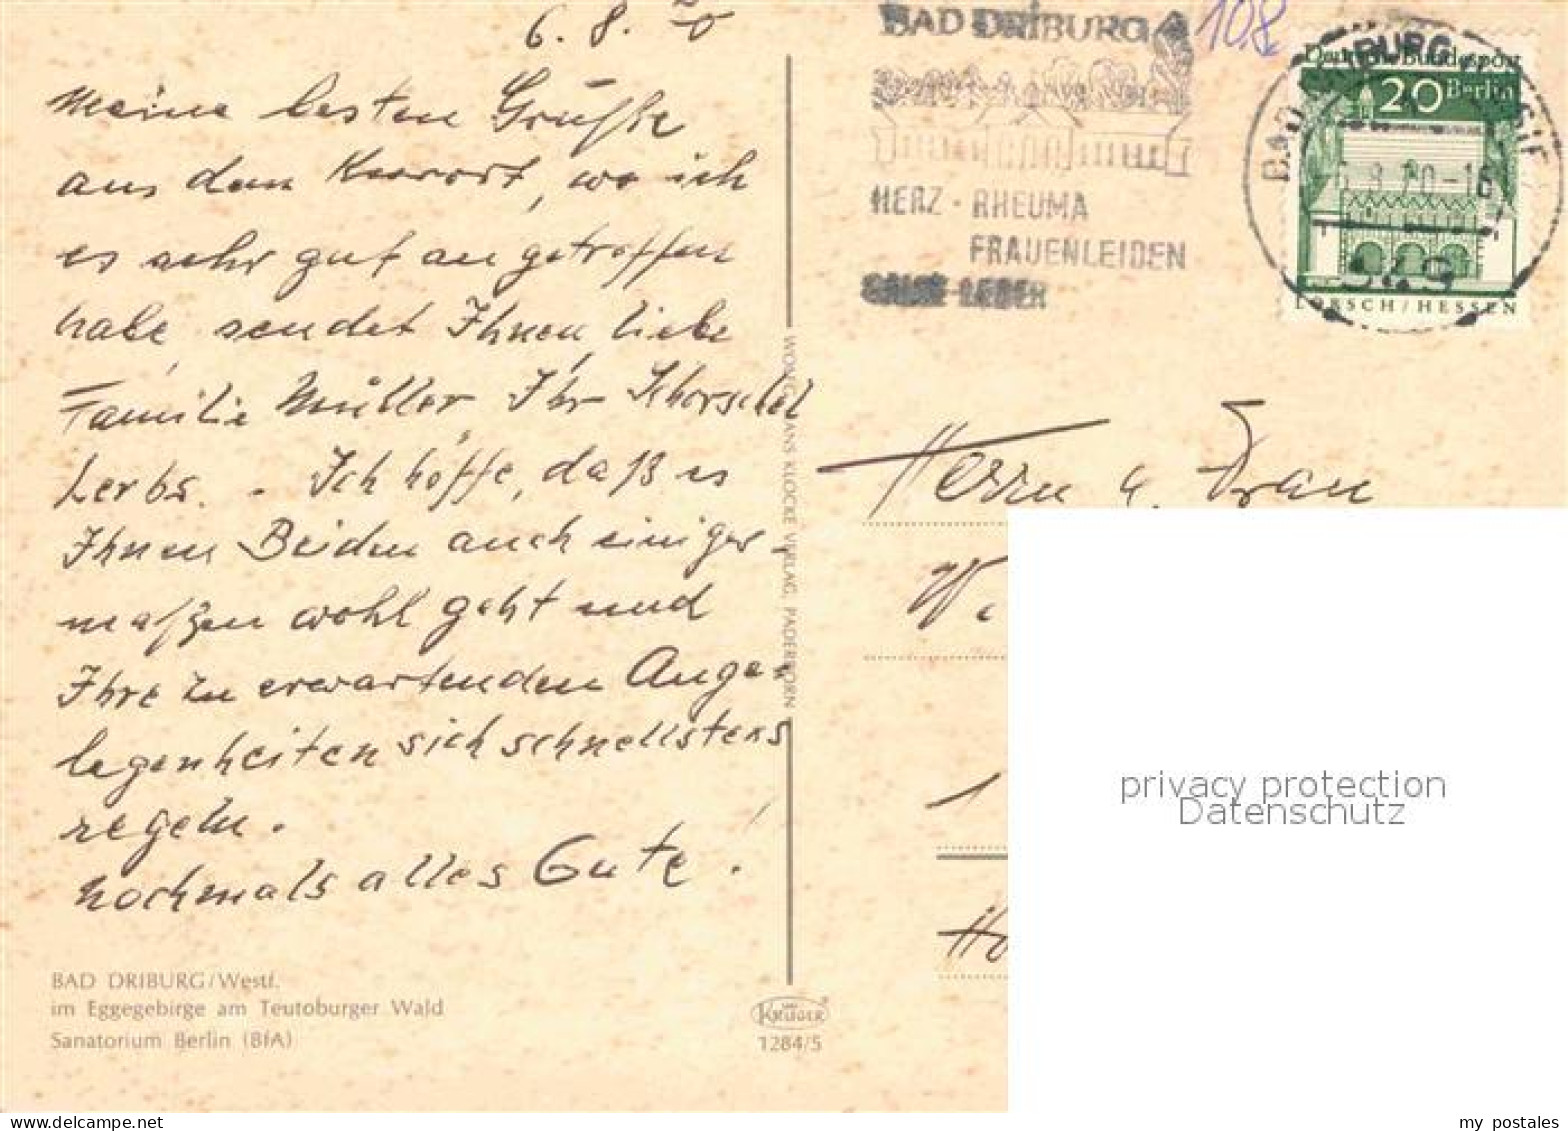 6. 8. 70
Meine besten Grüße
aus dem Kurort, wo ich
es sehr gut angetroffen
habe, sendet Ihnen, liebe
Familie Müller, Ihr
Lerbs. - Ich hoffe, daß es
Ihnen Beiden auch einiger-
maßen wohl geht und
Ihre zu erwartenden Ange-
legenheiten sich schnellstens
regeln.
Nochmals alles Gute!
BAD DRIBURG/Westf.
im Eggegebirge am Teutoburger Wald
Sanatorium Berlin (BfA)
WONECMANS KLOCKE VERLAG, PADERBORN
KRÜGER
1284/5
BAD DRIBURG
HERZ - RHEUMA
FRAUENLEIDEN
GALLE LEBER
10.8.
Deutsche Bundespost
20 Berlin
LORSCH/HESSEN
BAD DRIBURG
6.8.70-16
Herrn u. Frau
W.
1
Ho
privacy protection
Datenschutz
my postales